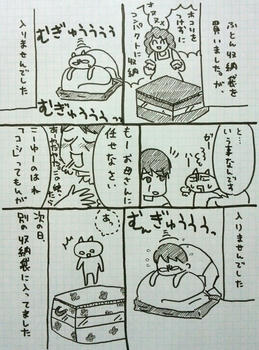 ふとん収納袋を
買いました。が、
ホコリを
つけずに
コンパクトに収納
むぎゅうううう
むぎゅうううっ
入りませんでした
と、
いう事なんです
もーお母さんに
任せなさい
こーゆーのはね
「コツ」ってもんが
むんぎゅうううっ
入りませんでした
あ。
次の日、
別の収納袋に入ってました